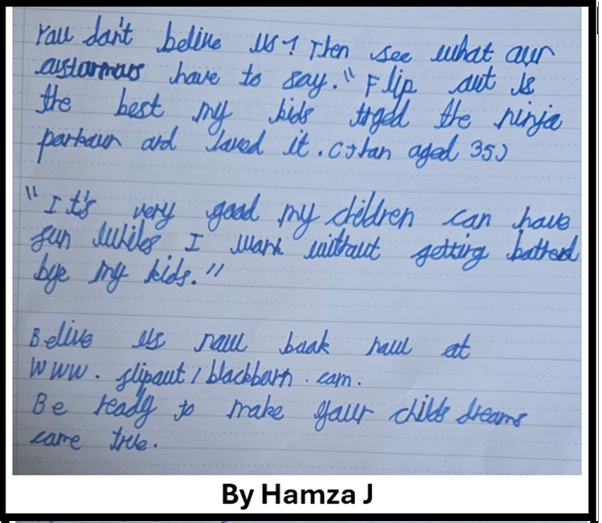 You don't belive us? Then see what our
custormars have to say." Flip out is
the best my kids tryed the ninja
parkour and loved it. (Jhan aged 35)
"It's very good my children can have
fun whiles I work without getting botherd
bye my kids."
Belive us now book now at
www.flipout/blackburn.com.
Be ready to make your childs dreams
come true.
By Hamza J